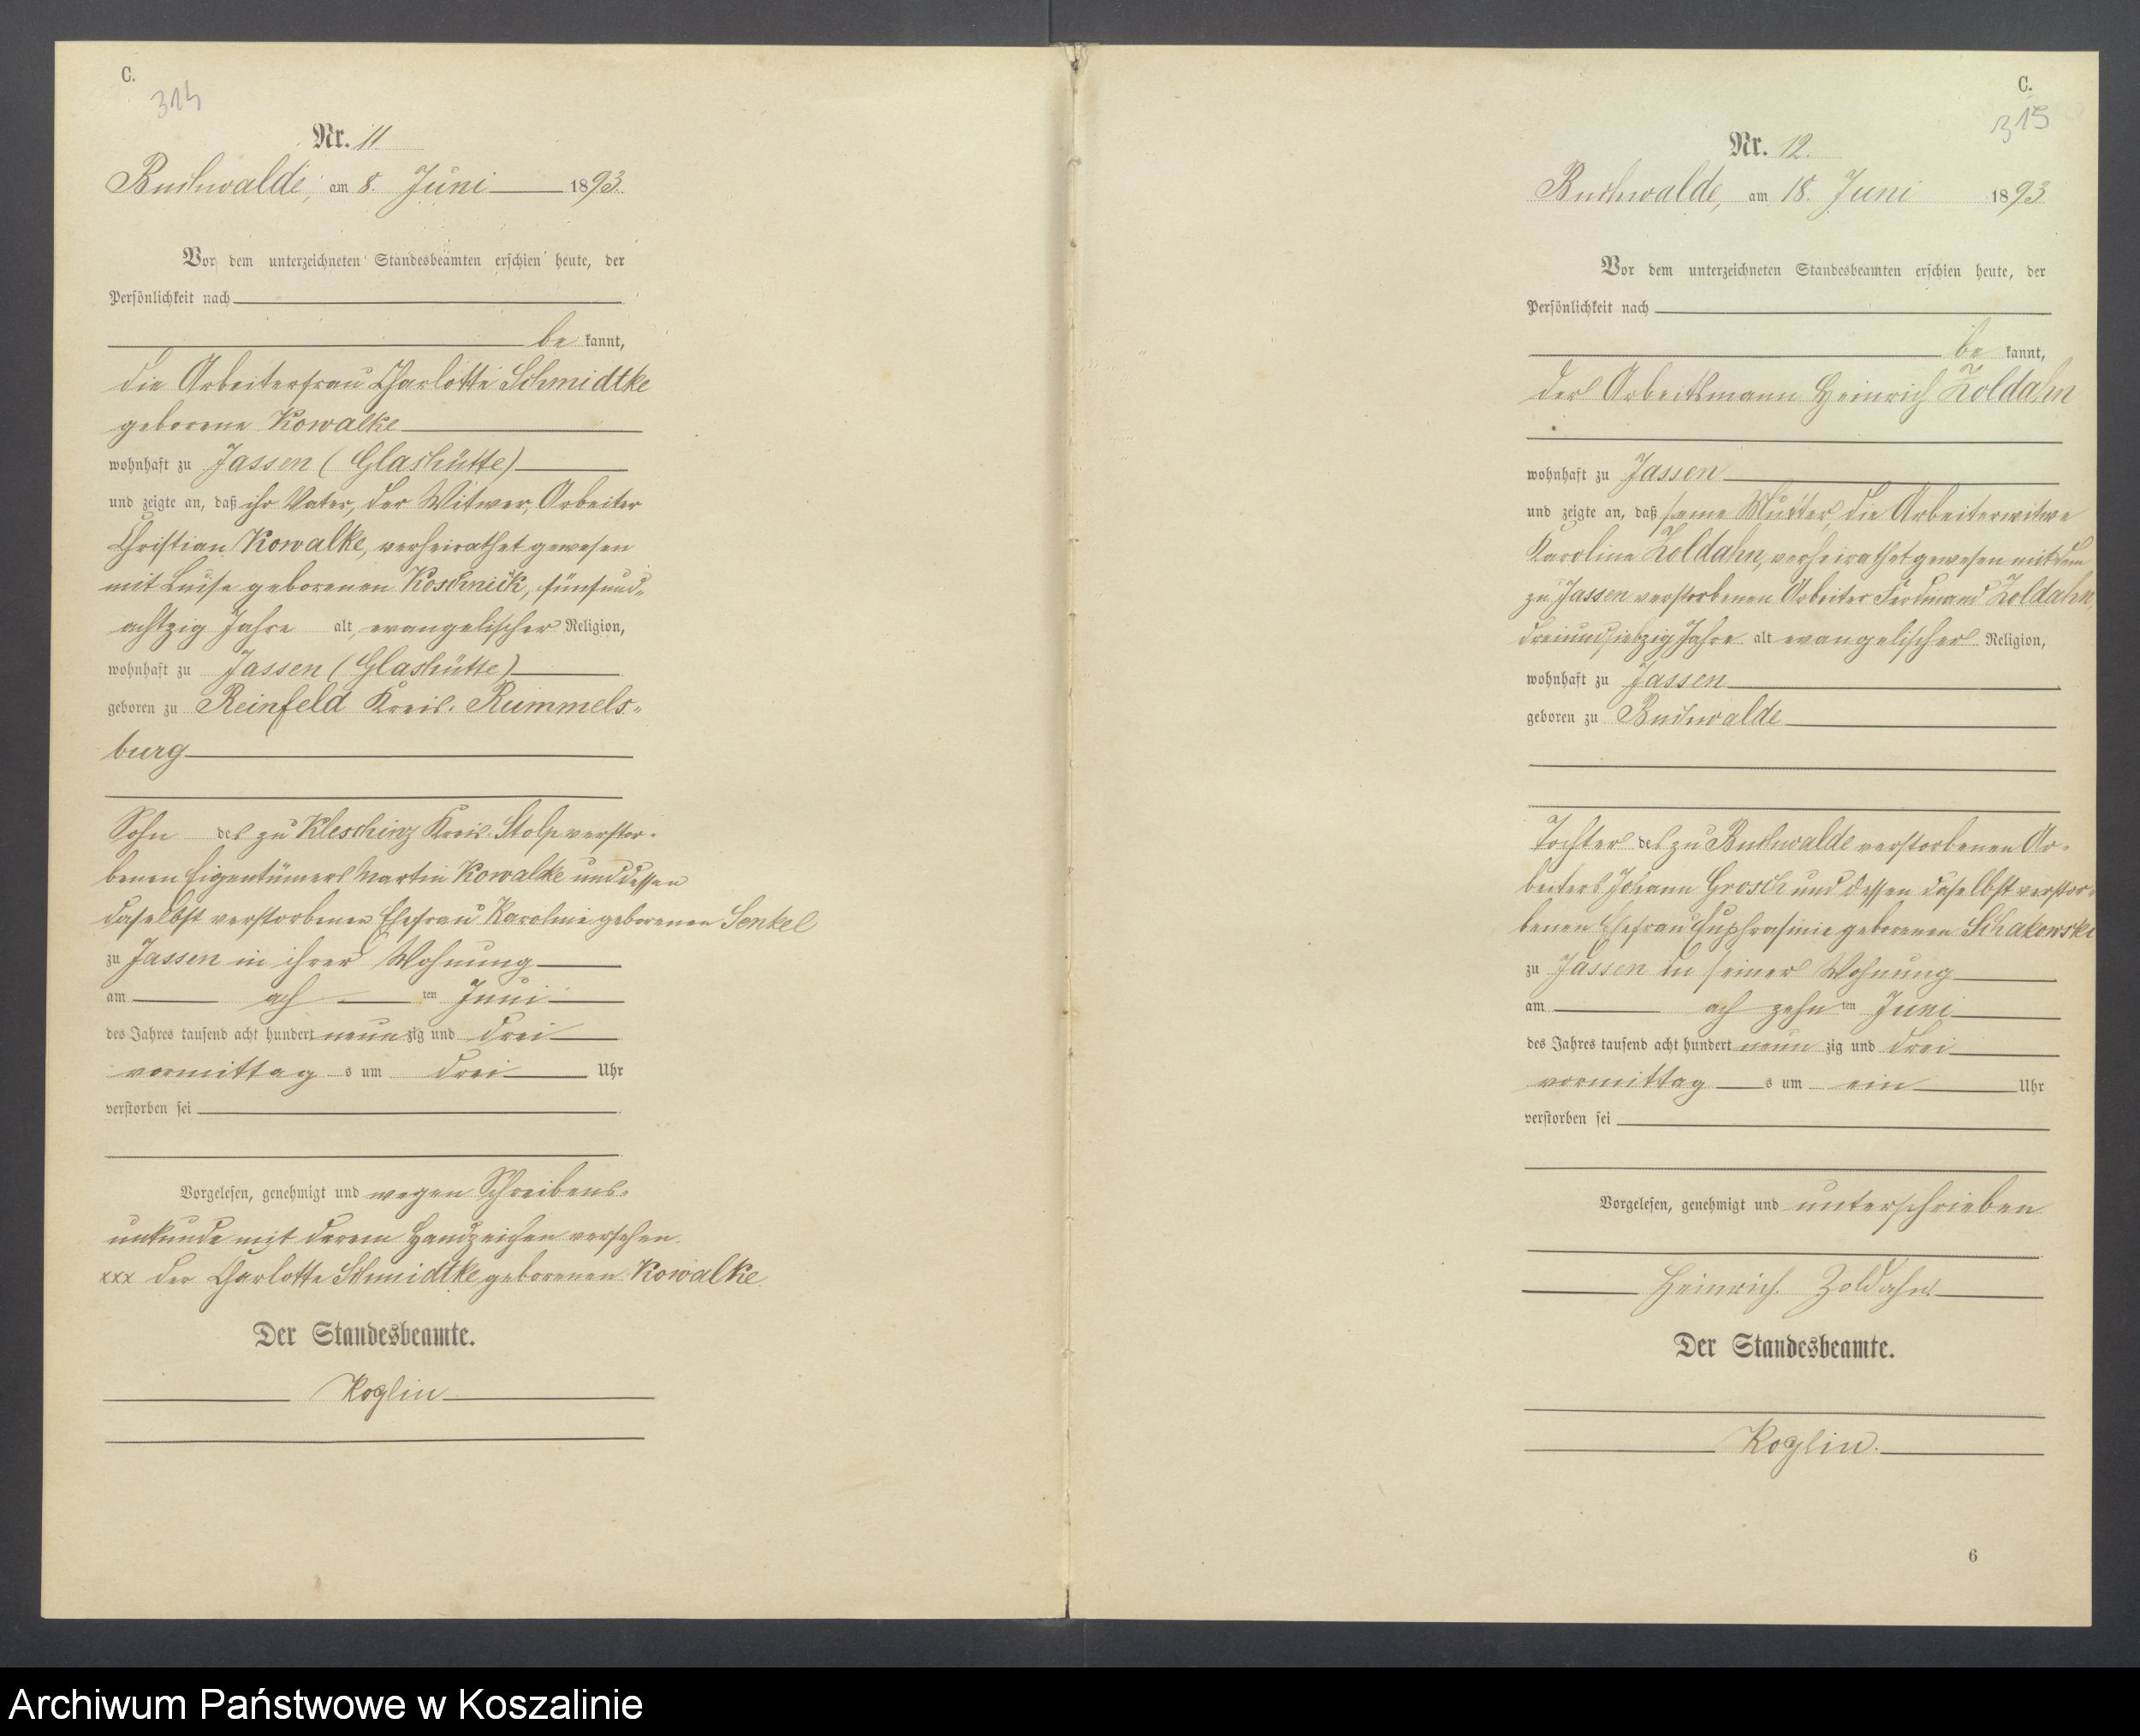 C.
314
Nr. 11
Buchwalde, am 8. Juni 1893.
Vor dem unterzeichneten Standesbeamten erschien heute, der
Persönlichkeit nach
be kannt,
die Arbeiterfrau Charlotte Schmidtke
geborene Kowalke
wohnhaft zu Jassen (Glashütte)
und zeigte an, daß ihr Vater, der Witwer, Arbeiter
Christian Kowalke, verheirathet gewesen
mit Luise geborenen Koschnick, fünfund„
achtzig Jahre alt, evangelischer Religion,
wohnhaft zu Jassen (Glashütte)
geboren zu Reinfeld Kreis. Rummels„
burg
Sohn des zu Kleschinz Kreis. Stolp verstor„
benen Eigentümers Martin Kowalke und dessen
daselbst verstorbenen Ehefrau Karoline geborenen Senkel
zu Jassen in ihrer Wohnung
am ach ten Juni
des Jahres tausend acht hundert neun zig und drei
vormittag s um drei Uhr
verstorben sei
Vorgelesen, genehmigt und wegen Schreibens„
unkunde mit deren Handzeichen versehen.
xxx der Charlotte Schmidtke geborenen Kowalke.
Der Standesbeamte.
Koglin
C.
315
Nr. 12.
Buchwalde, am 18. Juni 1893
Vor dem unterzeichneten Standesbeamten erschien heute, der
Persönlichkeit nach
be kannt,
der Arbeitsmann Heinrich Zoldahn
wohnhaft zu Jassen
und zeigte an, daß seine Mutter, die Arbeiterwitwe
Karoline Zoldahn, verheirathet gewesen mit dem
zu Jassen verstorbenen Arbeiter Ferdinand Zoldahn,
dreiundsiebzig Jahre alt evangelischer Religion,
wohnhaft zu Jassen
geboren zu Buchwalde
Tochter des zu Buchwalde verstorbenen Ar„
beiters Johann Grosch und dessen daselbst verstor„
benen Ehefrau Euphrosinie geborenen Schakowski
zu Jassen in seiner Wohnung
am ach zehn ten Juni
des Jahres tausend acht hundert neun zig und drei
vormittag s um ein Uhr
verstorben sei
Vorgelesen, genehmigt und unterschrieben
Heinrich Zoldahn.
Der Standesbeamte.
Koglin.
6
Archiwum Państwowe w Koszalinie